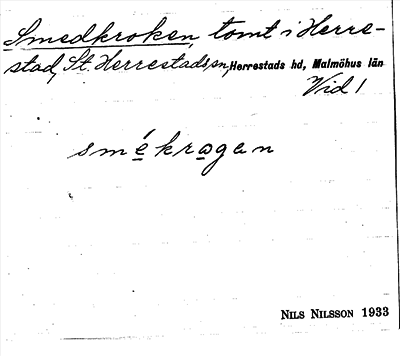 Smedkroken, tomt i Herre-
stad, St. Herrestads sn, Herrestads hd, Malmöhus län
Vid 1
smékrogan
NILS NILSSON 1933